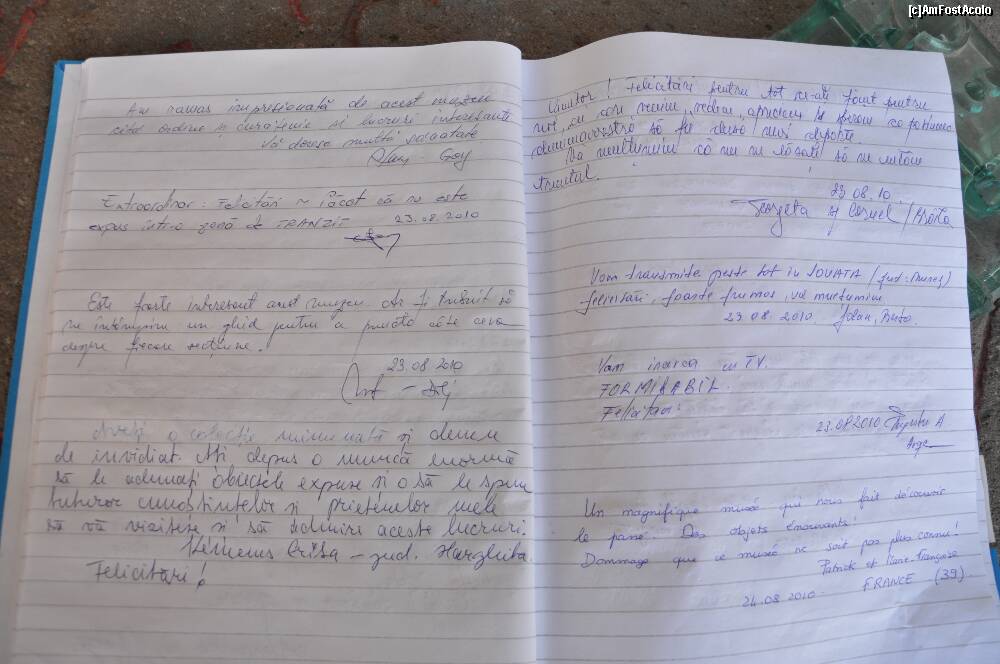 [c]AmFostAcolo
Am rămas impresionată de acest muzeu
câtă ordine și curățenie și lucruri interesante
Vă doresc multă sănătate
Extraordinar! Felicitări păcat că nu este
expus într-o zonă de TRANZIT 23.08.2010
Este foarte interesant acest muzeu. Ar fi trebuit să
ne întâmpine un ghid pentru a puncta câte ceva
despre fiecare secțiune.
23.08.2010
Aveți o colecție minunată și demnă
de invidiat. Ați depus o muncă enormă
să le adunați obiectele expuse și o să le spun
tuturor cunoștințelor și prietenilor mei
să vă viziteze și să admire aceste lucruri.
Kemenes Criza - jud. Harghita.
Felicitări!
Uimitor! Felicitări pentru tot ce-ați făcut pentru
noi, cu care venim, vedem, apreciem și sperăm ca
dumneavoastră să fie dusă mai departe.
Vă mulțumim că nu ne lăsați să ne uităm
trecutul.
23.08.10.
Georgeta și Cornel /
Vom transmite peste tot în SOVATA (jud. Mureș)
felicitări, foarte frumos, vă mulțumim
23.08.2010.
Vom încerca cu TV.
FORMIDABIL.
Felicitări
23.08.2010
Un magnifique musée qui nous fait découvrir
le passé. Des objets émouvants!
Dommage que ce musée ne soit pas plus connu!
Patrick et Marie-Françoise
FRANCE (39).
24.08.2010.